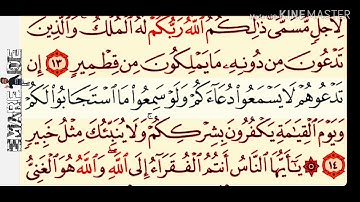 Made With
KINEMASTER
لِأَجَلٍ مُّسَمًّى ذَٰلِكُمُ ٱللَّهُ رَبُّكُمْ لَهُ ٱلْمُلْكُ وَٱلَّذِينَ
تَدْعُونَ مِن دُونِهِۦ مَا يَمْلِكُونَ مِن قِطْمِيرٍ ١٣ إِن
تَدْعُوهُمْ لَا يَسْمَعُوا۟ دُعَآءَكُمْ وَلَوْ سَمِعُوا۟ مَا ٱسْتَجَابُوا۟ لَكُمْ
وَيَوْمَ ٱلْقِيَٰمَةِ يَكْفُرُونَ بِشِرْكِكُمْ وَلَا يُنَبِّئُكَ مِثْلُ خَبِيرٍ
١٤ يَٰٓأَيُّهَا ٱلنَّاسُ أَنتُمُ ٱلْفُقَرَآءُ إِلَى ٱللَّهِ وَٱللَّهُ هُوَ ٱلْغَنِىُّ